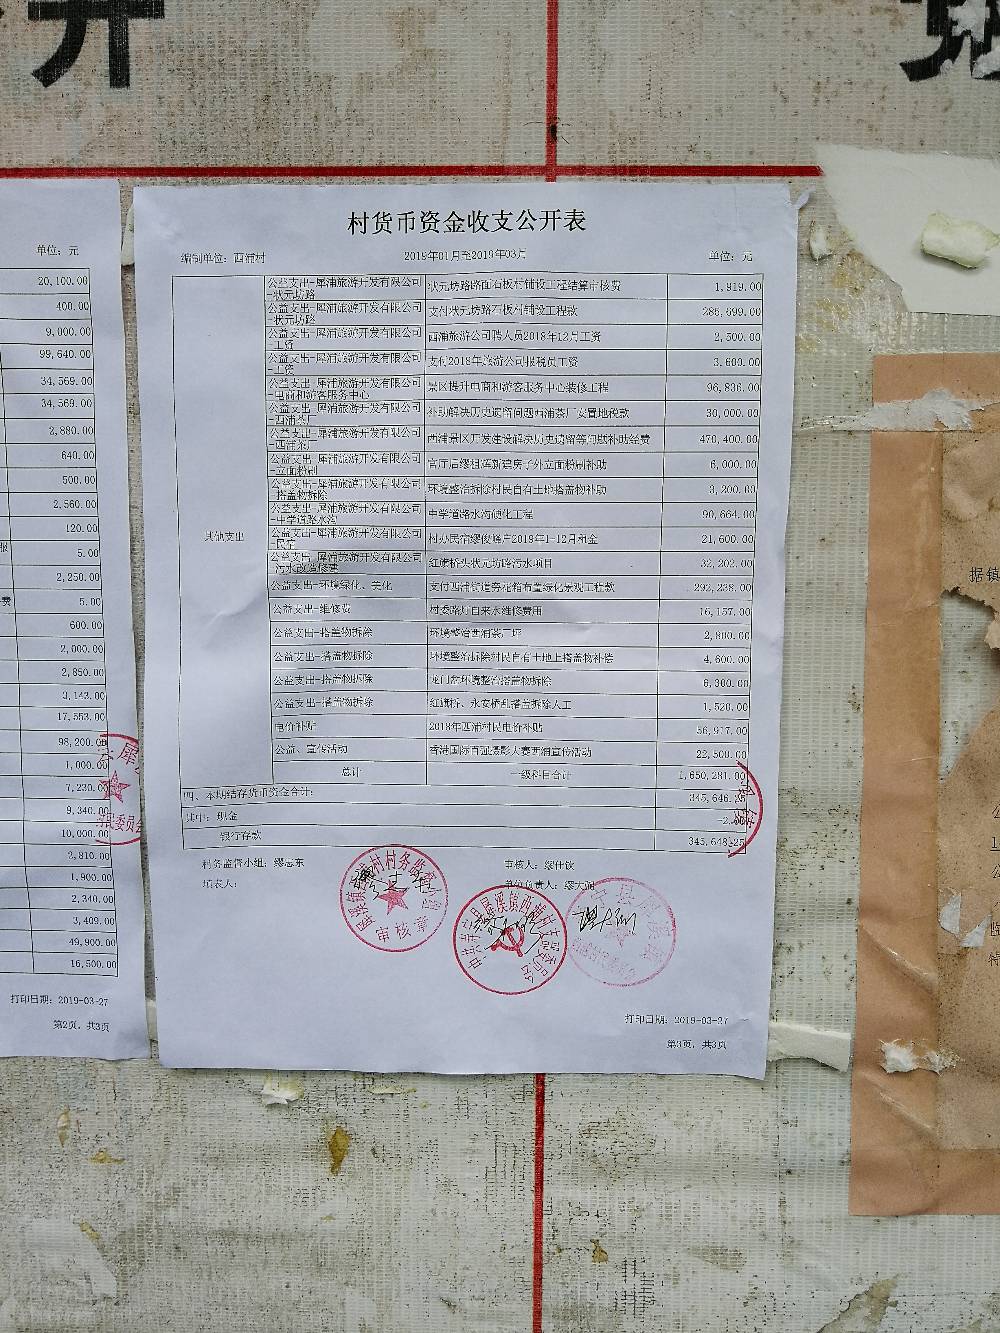 单位：元
20,100.00
400.00
9,000.00
99,640.00
34,569.00
34,569.00
2,880.00
640.00
500.00
2,560.00
120.00
5.00
2,250.00
费 5.00
600.00
2,000.00
2,850.00
3,143.00
17,553.00
98,200.00
1,000.00
7,230.00
9,340.00
10,000.00
2,810.00
1,900.00
2,340.00
3,409.00
49,900.00
16,500.00
打印日期：2019-03-27
第2页，共3页
村货币资金收支公开表
编制单位：西浦村 2019年01月至2019年03月 单位：元
其他支出
公益支出-犀浦旅游开发有限公司-状元坊路 状元坊路路面石板村铺设工程结算审核费 1,919.00
公益支出-犀浦旅游开发有限公司-状元坊路 支付状元坊路石板村铺设工程款 285,699.00
公益支出-犀浦旅游开发有限公司-工资 西浦旅游公司聘人员2018年12月工资 2,500.00
公益支出-犀浦旅游开发有限公司-工资 支付2018年旅游公司报税员工资 3,600.00
公益支出-犀浦旅游开发有限公司-电商和游客服务中心 景区提升电商和游客服务中心装修工程 96,836.00
公益支出-犀浦旅游开发有限公司-西浦茶厂 补助解决历史遗留问题西浦茶厂安置地税款 30,000.00
公益支出-犀浦旅游开发有限公司-西浦茶厂 西浦景区开发建设解决历史遗留等问题补助经费 470,400.00
公益支出-犀浦旅游开发有限公司-立面粉刷 官厅后缪祖辉新建房子外立面粉刷补助 6,000.00
公益支出-犀浦旅游开发有限公司-搭盖物拆除 环境整治拆除村民自有土地搭盖物补助 3,200.00
公益支出-犀浦旅游开发有限公司-中学道路水沟 中学道路水沟硬化工程 90,664.00
公益支出-犀浦旅游开发有限公司-民宿 村办民宿缪俊峰户2019年1-12月租金 21,600.00
公益支出-犀浦旅游开发有限公司-污水改造修建 红旗桥头状元坊路污水项目 32,202.00
公益支出-环境绿化、美化 支付西浦街道旁花箱布置绿化景观工程款 292,238.00
公益支出-维修费 村委路灯自来水维修费用 16,157.00
公益支出-搭盖物拆除 环境整治西浦 2,800.00
公益支出-搭盖物拆除 环境整治拆除村民自有土地上搭盖物补偿 4,600.00
公益支出-搭盖物拆除 龙门 环境整治搭盖物拆除 6,300.00
公益支出-搭盖物拆除 红旗桥、永安桥乱搭盖拆除人工 1,520.00
电价补贴 2018年西浦村民电价补贴 56,917.00
公益、宣传活动 香港国际 摄影大赛西浦宣传活动 22,500.00
总计 一级科目合计 1,650,281.00
四、本期结存货币资金合计： 345,646.25
其中：现金 -2.00
银行存款 345,648.25
村务监督小组：缪志东 审核人：缪仕钦
填表人： 单位负责人：缪大润
审核章
打印日期：2019-03-27
第3页，共3页
据镇